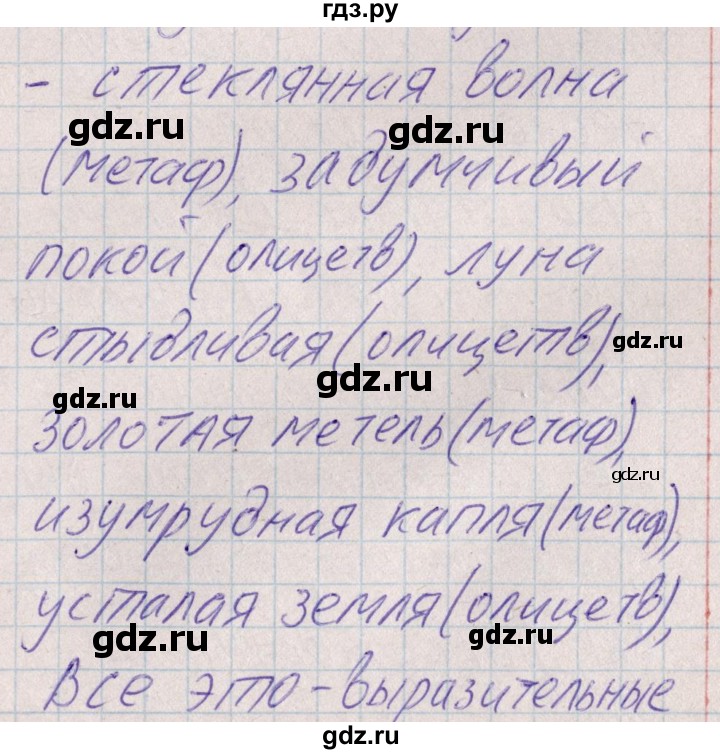 гдз.ру
- стеклянная волна
gdz.ru gdz.ru
(метаф), задумчивый
покой (олицетв), луна
стыдливая (олицетв),
gdz.ru
gdz.ru
gdz.ru
золотая метель (метаф),
gdz.ru
изумрудная капля (метаф),
усталая земля (олицетв),
gdz.ru gdz.ru
gdz.ru
Все это - выразительные
gdz.ru